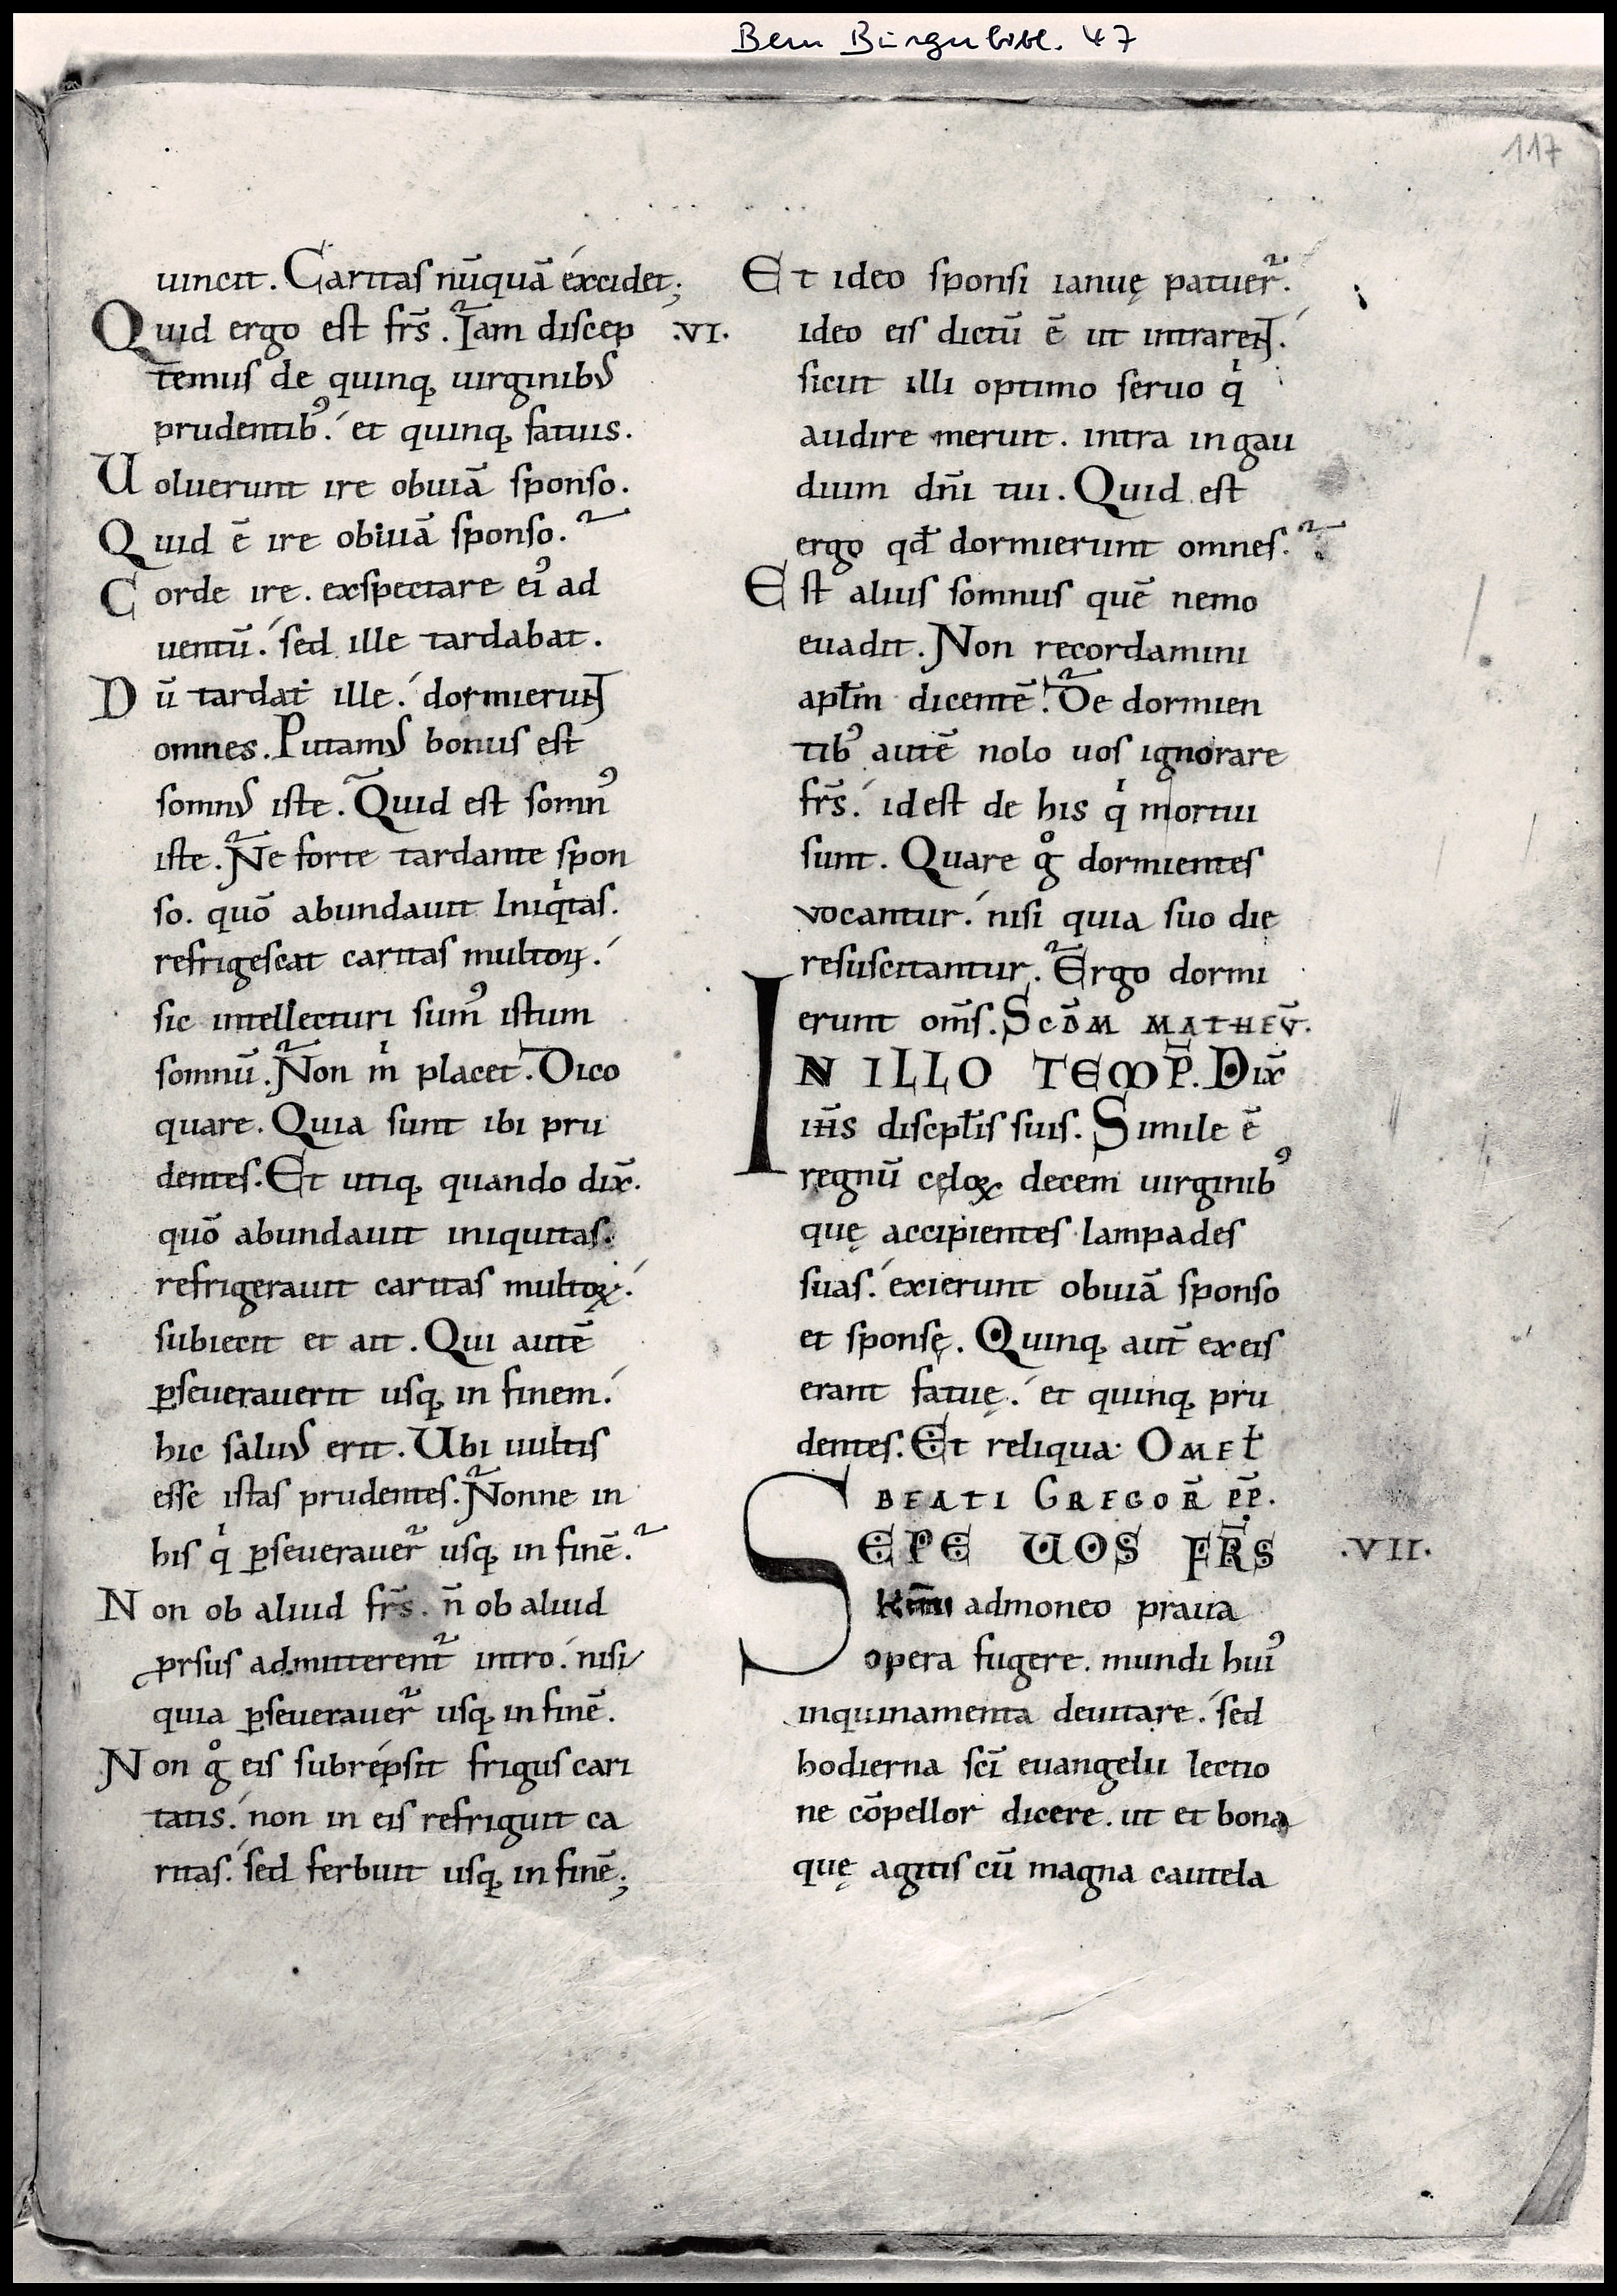 Bern Burgerbibl. 47
117
uincit. Caritas nūquā excidet;
Quid ergo est frs̄. Iam discep .VI.
temus de quinq; uirginibus
prudentibꝰ. et quinq; fatuis.
Uoluerunt ire obuiā sponso.
Quid ē ire obiuā sponso.
Corde ire. exspectare eiꝰ ad
uentū. sed ille tardabat.
Dū tardat ille. dormierunt
omnes. Putamus bonus est
somnus iste. Quid est somnꝰ
iste. Ne forte tardante spon
so. quō abundauit Iniqͥtas.
refrigescat caritas multoꝝ.
sic intellecturi sumꝰ istum
somnū. Non mͥ placet. Dico
quare. Quia sunt ibi pru
dentes. Et utiq; quando dix̄.
quō abundauit iniquitas.
refrigerauit caritas multoꝝ.
subiecit et ait. Qui autē
ꝑseuerauerit usq; in finem.
hic saluus erit. Ubi uultis
esse istas prudentes. Nonne in
his qͥ ꝑseuerauer̄ usq; in finē.
Non ob aliud frs̄. n̄ ob aliud
ꝓrsus admitterent̄ intro. nisi
quia ꝑseuerauer̄ usq; in finē.
Non gͦ eis subrepsit frigus cari
tatis. non in eis refriguit ca
ritas. sed ferbuit usq; in finē;
Et ideo sponsi ianuę patuer̄.
ideo eis dictū ē ut intrarent.
sicut illi optimo seruo qͥ
audire meruit. intra in gau
dium dn̄i tui. Quid est
ergo qđ dormierunt omnes.
Est alius somnus quē nemo
euadit. Non recordamini
apłm dicentē. De dormien
tibꝰ autē nolo uos ignorare
frs̄. id est de his qͥ mortui
sunt. Quare gͦ dormientes
vocantur. nisi quia suo die
resuscitantur. Ergo dormi
erunt om̄s. SCD̄M MATHEV̄.
IN ILLO TEMP̄. Dix̄
ih̄s discipłis suis. Simile ē
regnū cęloꝝ decem uirginibꝰ
quę accipientes lampades
suas. exierunt obuiā sponso
et sponsę. Quinq; aut̄ ex eis
erant fatuę. et quinq; pru
dentes. Et reliqua. OMEŁ
BEATI GREGOR̄ P̄P̄.
SEPE UOS FR̄S .VII.
km̄i admoneo praua
opera fugere. mundi huiꝰ
inquinamenta deuitare. sed
hodierna sc̄i euangelii lectio
ne cōpellor dicere. ut et bona
quę agitis cū magna cautela